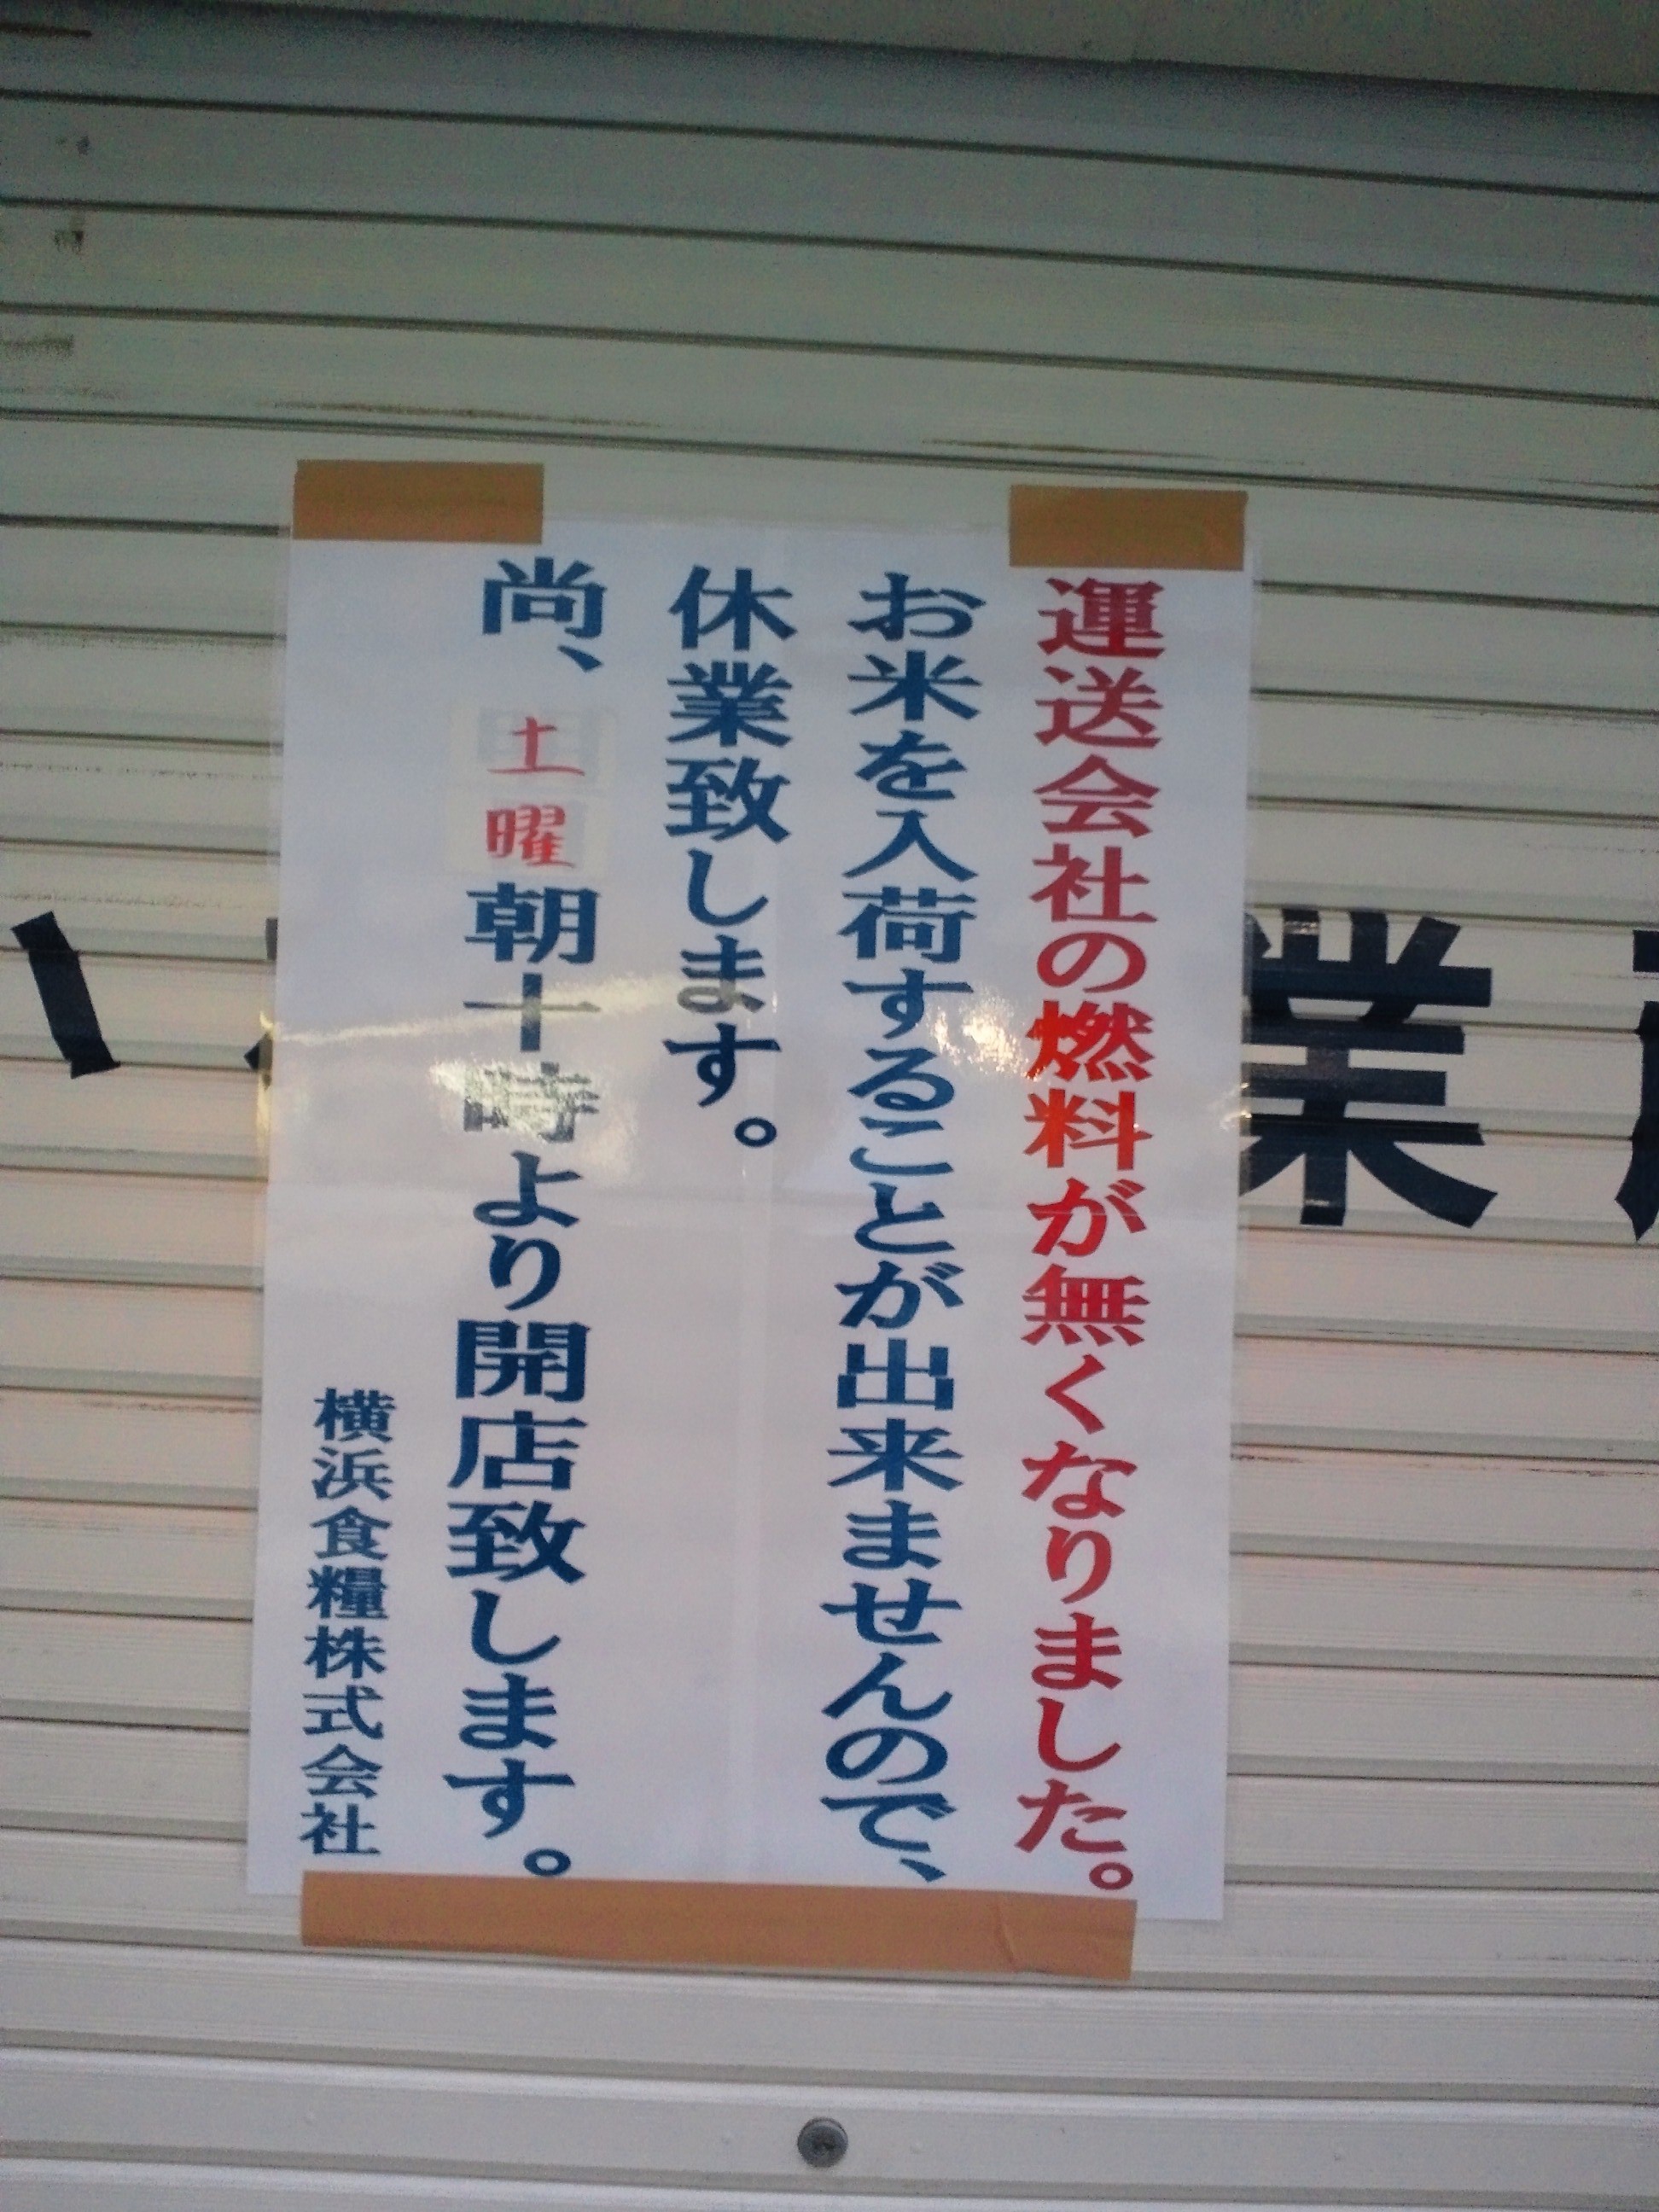 運送会社の燃料が無くなりました。
お米を入荷することが出来ませんので、
休業致します。
尚、土曜朝十時より開店致します。
横浜食糧株式会社
業